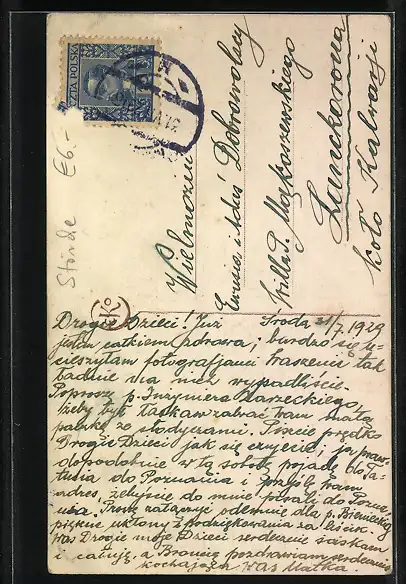 CZTA POLSKA
Störde €6.-
Wielmożni
Emma i Adaś Dobrowolscy
willa P. Mąkoszewskiego
Lanckorona
koło Kalwarji
K
Środa 31/7. 1929
Drogie Dzieci! Już
jestem całkiem zdrowa; bardzo się u-
cieszyłam fotografjami Waszemi tak
ładnie na nich wypadliście.
Poproszę p. Inżyniera Zarzeckiego,
żeby był łaskaw zabrać Wam małą
paczkę ze słodyczami. Piszcie prędko
Drogie Dzieci jak się czujecie; ja praw-
dopodobnie w tą sobotę pojadę do
do Poznania i prześlę Wam
adres, żebyście do mnie pisali do Pozna-
nia. Proszę załączyć odemnie dla p.
piękne ukłony z podziękowaniem za liścik.
Was Drogie moje Dzieci serdecznie ściskam
i całuję, a Bronię pozdrawiam serdecznie
kochająca Was Matka.